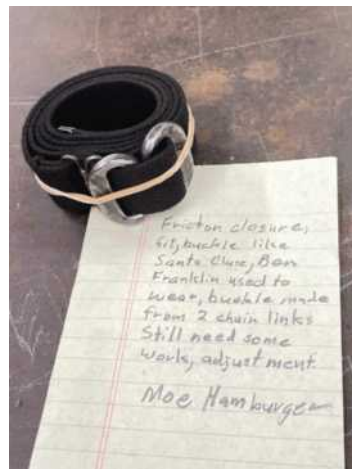 Friction closure,
buckle like
Santa Clause, Ben
Franklin used to
wear, buckle made
from 2 chain links
Still need some
work, adjustment
Moe Hamburger